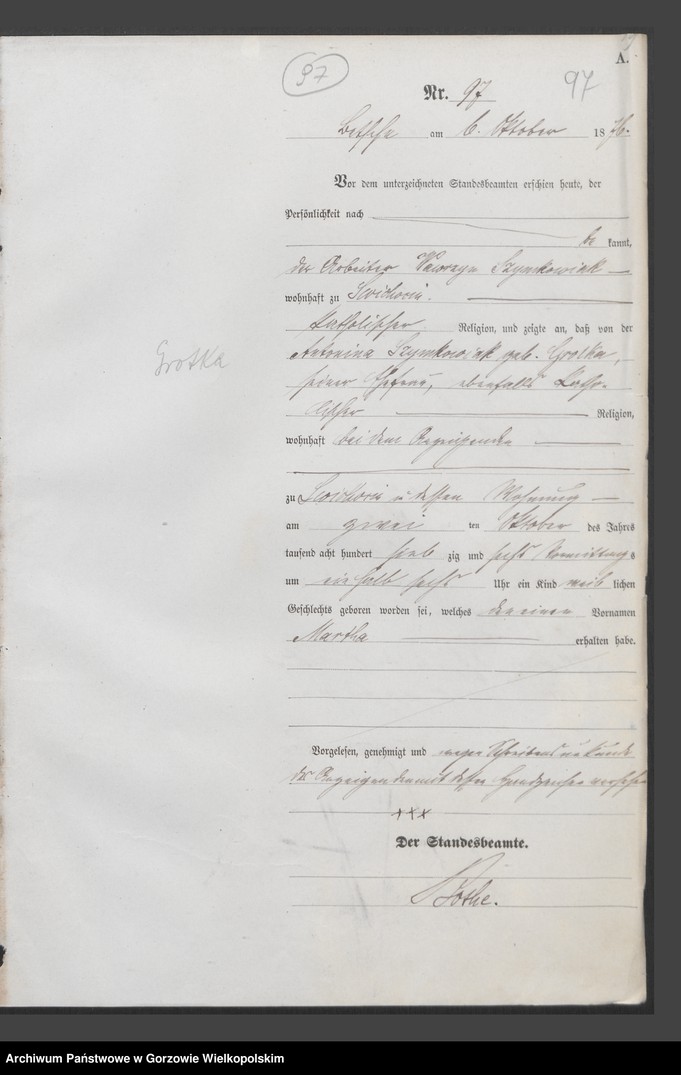 A.
97
97
Nr. 97
Betsche am 6. Oktober 1876.
Vor dem unterzeichneten Standesbeamten erschien heute, der
Persönlichkeit nach
be kannt,
der Arbeiter Wawrzyn Szymkowiak
wohnhaft zu
katholischer Religion, und zeigte an, daß von der
Antonina Szymkowiak geb. Grotka,
Grotka
seiner Ehefrau, ebenfalls katho-
lischer Religion,
wohnhaft bei dem
zu in dessen Wohnung
am zwei ten Oktober des Jahres
tausend acht hundert sieb zig und sechs Vormittags
um ein halb sechs Uhr ein Kind weib lichen
Geschlechts geboren worden sei, welches den einen Vornamen
Martha erhalten habe.
Vorgelesen, genehmigt und wegen Schreibensunkunde
des Anzeigenden mit dessen Handzeichen versehen
+++
Der Standesbeamte.
Rothe.
Archiwum Państwowe w Gorzowie Wielkopolskim